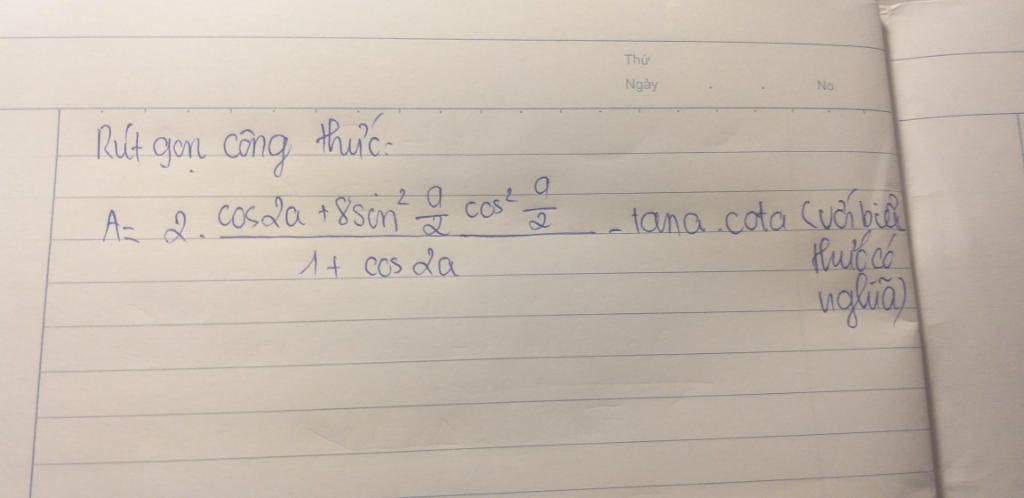 Thứ
Ngày . . No.
Rút gọn công thức:
A = 2. \frac{cos2a + 8sin² \frac{a}{2} cos² \frac{a}{2}}{1 + cos2a} - tana.cota (với biểu
thức có
nghĩa)